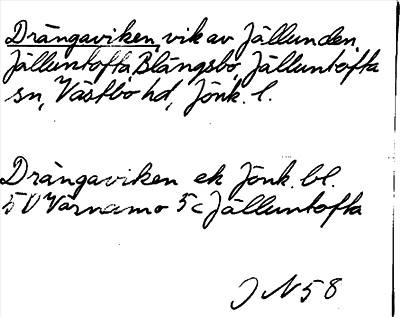 Drängaviken, vik av Jällunden,
Jälluntofta, Blängsbo, Jälluntofta
sn, Västbo hd, Jönk. l.
Drängaviken ek Jönk. bl.
5D Värnamo 5c Jälluntofta
JN58